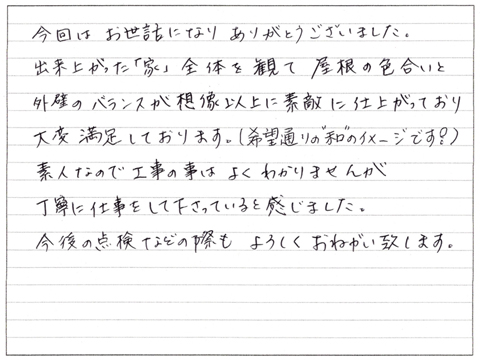 今回は お世話になり ありがとうございました。
出来上がった「家」全体を観て 屋根の色合いと
外壁のバランスが想像以上に素敵に仕上がっており
大変満足しております。(希望通りの"和"のイメージです!?)
素人なので工事の事はよくわかりませんが
丁寧に仕事をして下さっていると感じました。
今後の点検などの際も よろしくおねがい致します。